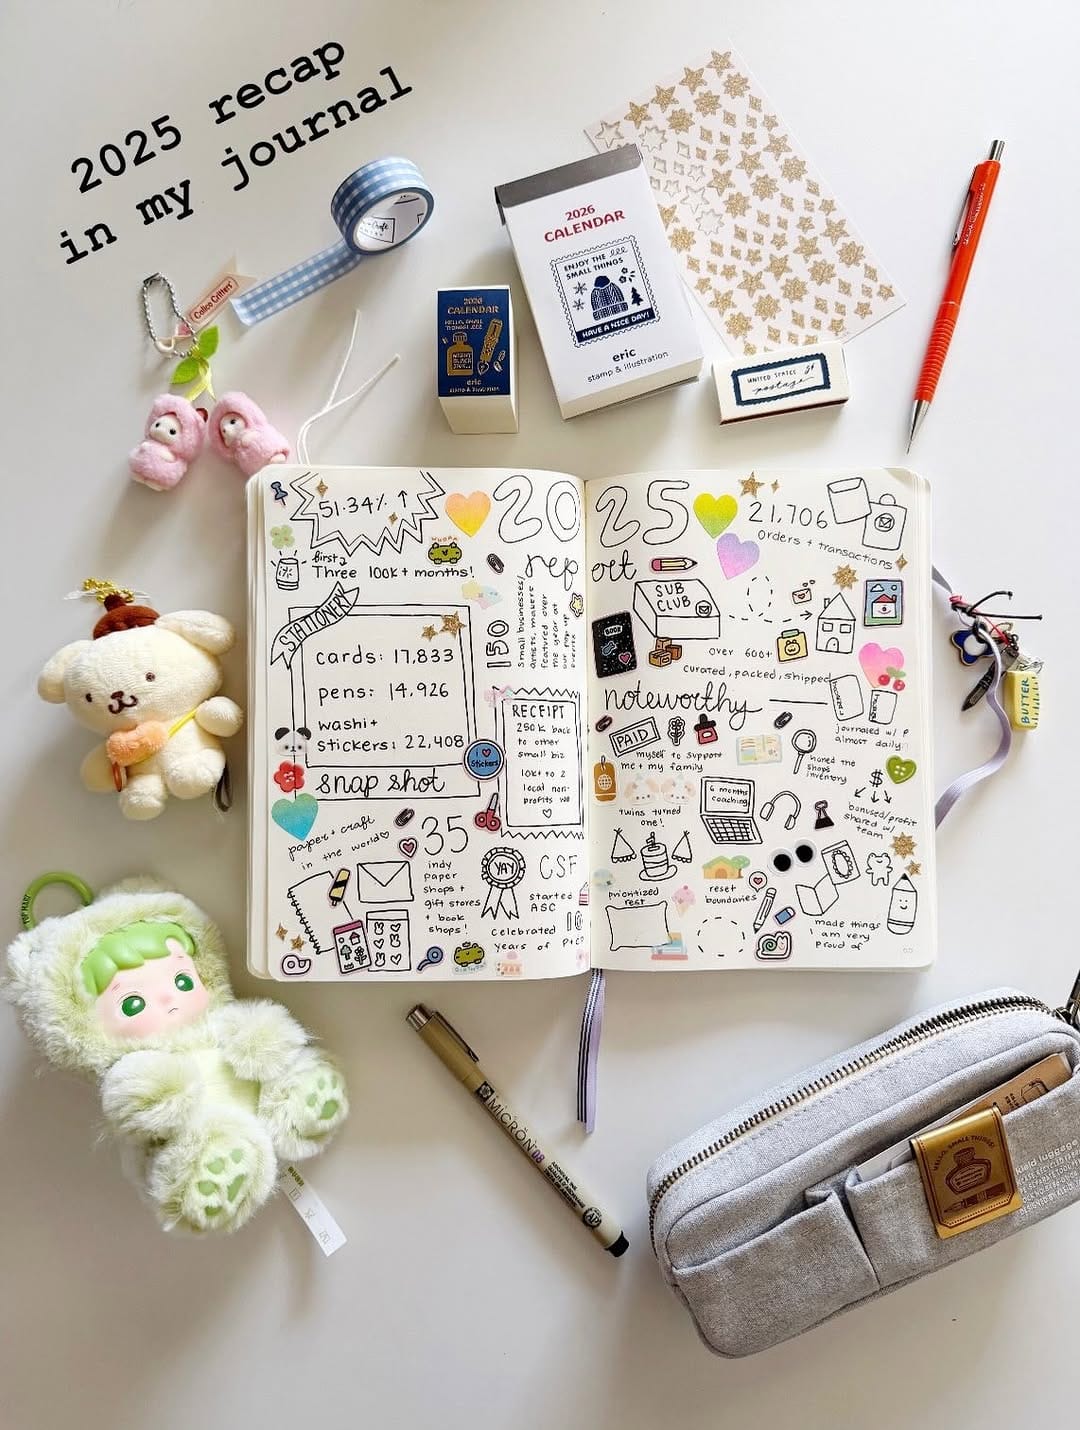 2025 recap
in my journal
Calico Critters
2026
CALENDAR
HELLO, SMALL
THINGS! ZZZ
NIGHT
BLACK
INK
eric
STAMP & ILLUSTRATION
2026
CALENDAR
ENJOY THE
SMALL THINGS
HAVE A NICE DAY!
eric
stamp & illustration
UNITED STATES of
postage
51.34% ↑
first
Three 100k+ months!
STATIONERY
cards: 17,833
pens: 14,926
washi+
stickers: 22,408
snap shot
I ♡
Stickers
paper + craft
in the world♡
35
indy
paper
shops +
gift stores
+ book
shops!
YAY
CSF
started
ASC
Celebrated 10
years of P+C
2025
report
150
small businesses/
artists, makers
featured over
the year at
our pop up
events
RECEIPT
250k back
to other
small biz
10k+ to 2
local non-
profits
♡
21,706
orders + transactions
SUB
CLUB
BOOK
over 600+
curated, packed, shipped
noteworthy
PAID
myself to support
me + my family
honed the
shops
inventory
journaled w/ P
almost daily!
twins turned
one!
6 months
coaching
$
bonused/profit
shared w/
team
prioritized
rest
reset
boundaries
made things
I am very
proud of
BUTTER
POP MART
MICRON 08
HELLO, SMALL THINGS!
field luggage